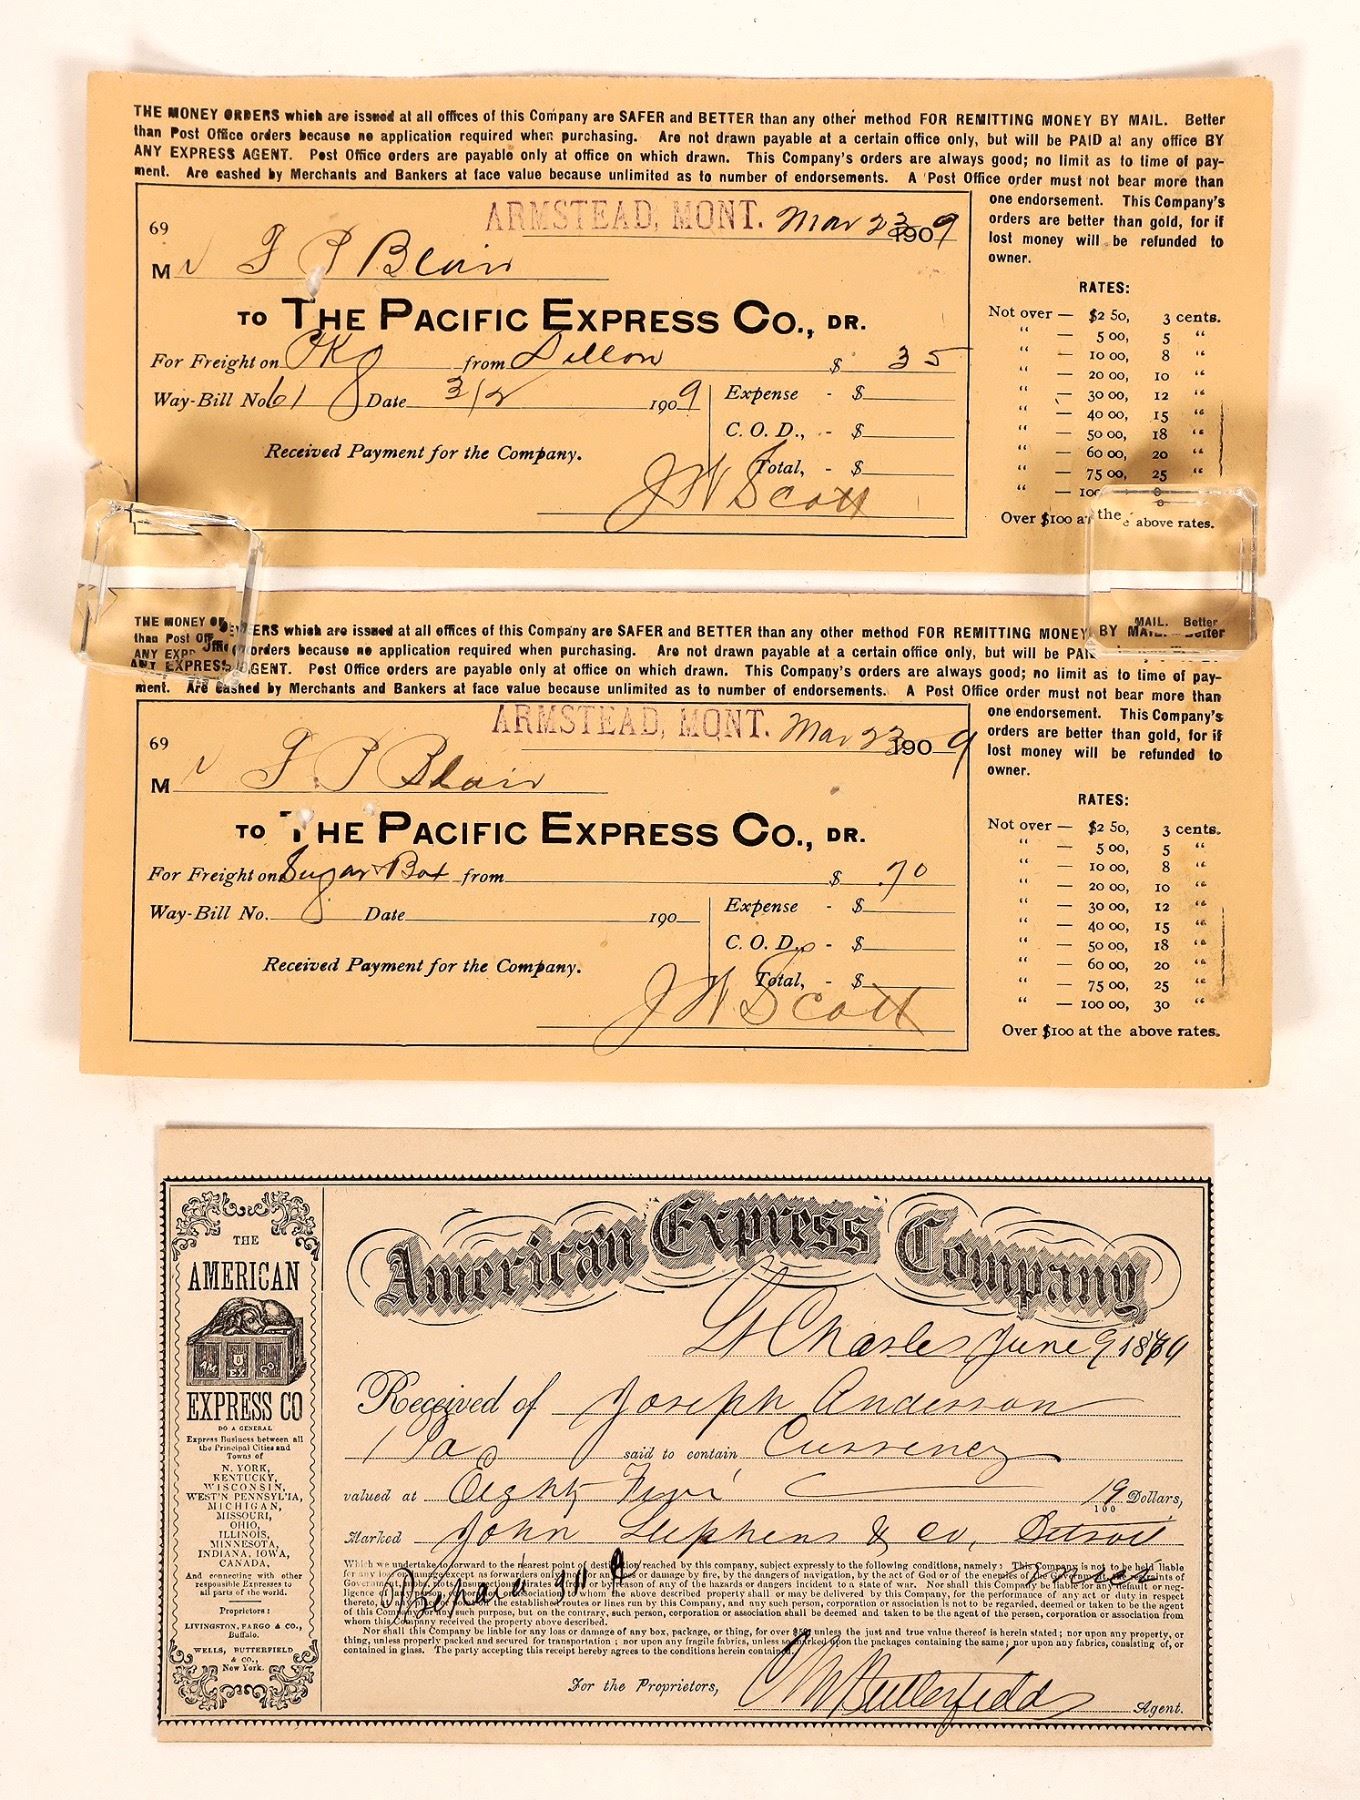 THE MONEY ORDERS which are issued at all offices of this Company are SAFER and BETTER than any other method FOR REMITTING MONEY BY MAIL. Better
than Post Office orders because no application required when purchasing. Are not drawn payable at a certain office only, but will be PAID at any office BY
ANY EXPRESS AGENT. Post Office orders are payable only at office on which drawn. This Company's orders are always good; no limit as to time of pay-
ment. Are cashed by Merchants and Bankers at face value because unlimited as to number of endorsements. A Post Office order must not bear more than
one endorsement. This Company's
orders are better than gold, for if
lost money will be refunded to
owner.
RATES:
Not over — $2 50, 3 cents.
“ — 5 00, 5 “
“ — 10 00, 8 “
“ — 20 00, 10 “
“ — 30 00, 12 “
“ — 40 00, 15 “
“ — 50 00, 18 “
“ — 60 00, 20 “
“ — 75 00, 25 “
“ — 100
Over $100 at the above rates.
ARMSTEAD, MONT. Mar 23 1909
69
M r F P Blair
TO THE PACIFIC EXPRESS CO., DR.
For Freight on Pkg from Dillon $ 35
Way-Bill No. 61 Date 3/2 1909
Expense - $
C. O. D., - $
Received Payment for the Company.
Total, - $
J W Scott
THE MONEY ORDERS which are issued at all offices of this Company are SAFER and BETTER than any other method FOR REMITTING MONEY BY MAIL. Better
than Post Office orders because no application required when purchasing. Are not drawn payable at a certain office only, but will be PAID
ANY EXPRESS AGENT. Post Office orders are payable only at office on which drawn. This Company's orders are always good; no limit as to time of pay-
ment. Are cashed by Merchants and Bankers at face value because unlimited as to number of endorsements. A Post Office order must not bear more than
one endorsement. This Company's
orders are better than gold, for if
lost money will be refunded to
owner.
RATES:
Not over — $2 50, 3 cents.
“ — 5 00, 5 “
“ — 10 00, 8 “
“ — 20 00, 10 “
“ — 30 00, 12 “
“ — 40 00, 15 “
“ — 50 00, 18 “
“ — 60 00, 20 “
“ — 75 00, 25 “
“ — 100 00, 30 “
Over $100 at the above rates.
ARMSTEAD, MONT. Mar 23 1909
69
M r F P Blair
TO THE PACIFIC EXPRESS CO., DR.
For Freight on Sugar & Box from $ .70
Way-Bill No. Date 190
Expense - $
C. O. D., - $
Received Payment for the Company.
Total, - $
J W Scott
THE
AMERICAN
AM EX CO
EXPRESS CO
DO A GENERAL
Express Business between all
the Principal Cities and
Towns of
N. YORK,
KENTUCKY,
WISCONSIN,
WEST'N PENNSYL'IA,
MICHIGAN,
MISSOURI,
OHIO,
ILLINOIS,
MINNESOTA,
INDIANA, IOWA,
CANADA,
And connecting with other
responsible Expresses to
all parts of the world.
Proprietors:
LIVINGSTON, FARGO & CO.,
Buffalo.
WELLS, BUTTERFIELD
& CO.,
New York.
American Express Company
St Charles June 9 18
Received of Joseph Anderson
1 Pa said to contain Currency
valued at Eighty Five 19/100 Dollars,
Marked John Stephens & Co, Detroit
Which we undertake to forward to the nearest point of destination reached by this company, subject expressly to the following conditions, namely: This Company is not to be held liable
for any loss or damage except as forwarders only, nor for any loss or damage by fire, by the dangers of navigation, by the act of God or of the enemies of the Government, the restraints of
Government, mobs, riots, insurrections, pirates, or from or by reason of any of the hazards or dangers incident to a state of war. Nor shall this Company be liable for any default or neg-
ligence of any person, corporation or association to whom the above described property shall or may be delivered by this Company, for the performance of any act or duty in respect
thereto, the established routes or lines run by this Company, and any such person, corporation or association is not to be regarded, deemed or taken to be the agent
of this Company for any such purpose, but on the contrary, such person, corporation or association shall be deemed and taken to be the agent of the person, corporation or association from
whom this Company received the property above described.
Nor shall this Company be liable for any loss or damage of any box, package, or thing, for over $50 unless the just and true value thereof is herein stated; nor upon any property, or
thing, unless properly packed and secured for transportation; nor upon any fragile fabrics, unless so marked upon the packages containing the same; nor upon any fabrics, consisting of, or
contained in glass. The party accepting this receipt hereby agrees to the conditions herein contained.
For the Proprietors, Butterfield Agent.